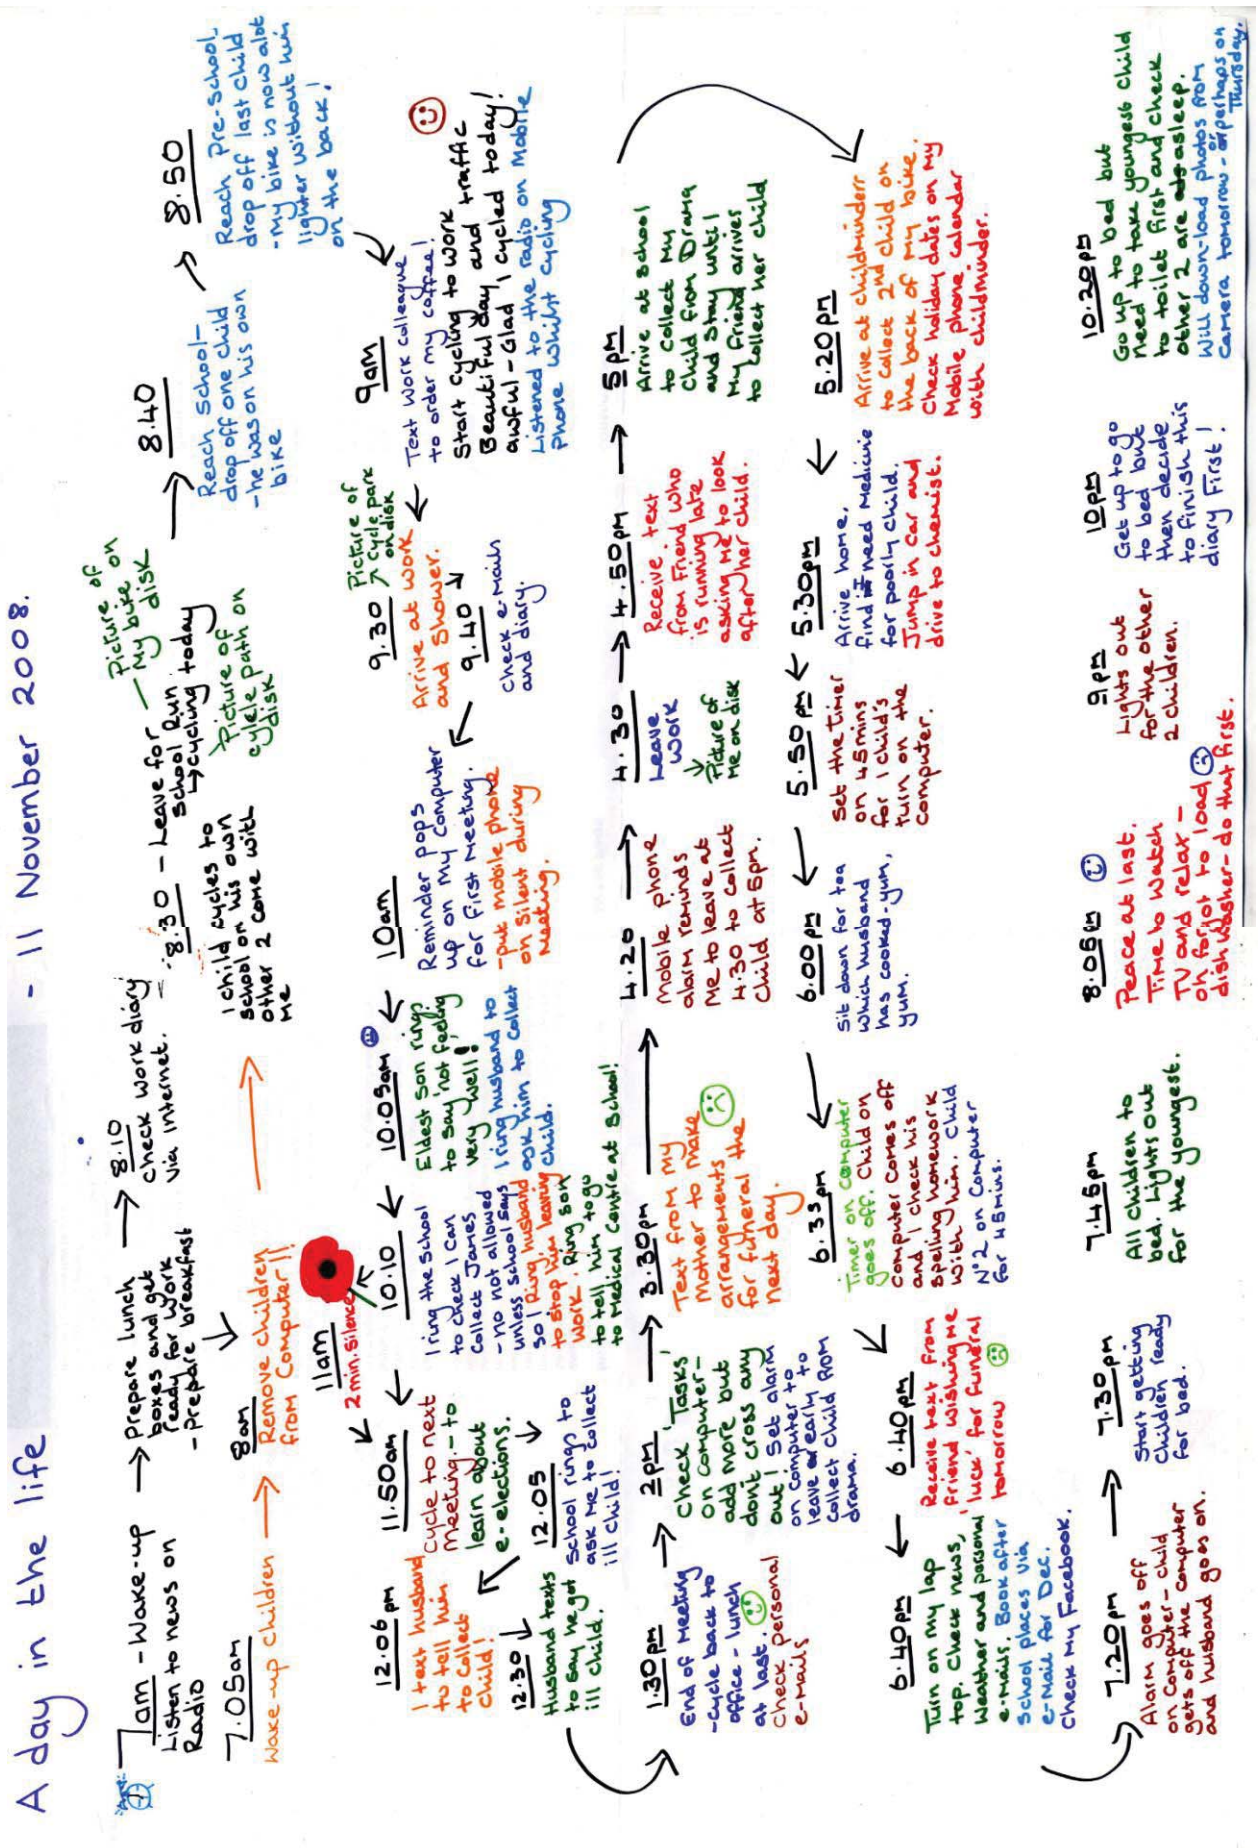 A day in the life - 11 November 2008.
7am - Wake-up
Listen to news on
Radio
prepare lunch
boxes and get
ready for work
- prepare breakfast
8.10
check work diary
via internet.
8.30 - Leave for
school run
cycling today
Picture of
my bike on
disk
Picture of
cycle path on
disk
1 child cycles to
school on his own
other 2 come with
me
8.40
Reach School-
drop off one child
- he was on his own
bike
8.50
Reach Pre-school,
drop off last child
- my bike is now alot
lighter without him
on the back!
7.05am
Wake-up children
8am
Remove children
from Computer!!
9am
Text work colleague
to order my coffee!
Start cycling to work
Beautiful day and traffic
awful - Glad I cycled today!
Listened to the radio on mobile
phone whilst cycling
9.30
Picture of
cycle park
on disk
Arrive at work
and shower.
9.40
check e-mails
and diary.
10am
Reminder pops
up on my computer
for first meeting.
- put mobile phone
on silent during
meeting.
10.05am
Eldest son rings
to say 'not feeling
very well!
I ring husband to
ask him to collect
child.
10.10
I ring the school
to check I can
collect James
- no not allowed
unless school says
so! Ring husband
to stop him leaving
work. Ring son
to tell him to go
to Medical Centre at School!
11am
2 min. silence
11.50am
cycle to next
meeting - to
learn about
e-elections.
12.05
School rings to
ask me to collect
ill child!
12.06pm
I text husband
to tell him
to collect
child!
12.30
Husband texts
to say he got
ill child.
1.30pm
End of meeting
- cycle back to
office - lunch
at last.
Check personal
e-mails
2pm
Check 'Tasks'
on computer-
add more but
don't cross any
out! Set alarm
on computer to
leave early to
collect child from
drama.
3.30pm
Text from my
mother to make
arrangements
for funeral the
next day.
4.20
Mobile phone
alarm reminds
me to leave at
4.30 to collect
child at 5pm.
4.30
Leave
work
Picture of
me on disk
4.50pm
Receive text
from friend who
is running late
asking me to look
after her child.
5pm
Arrive at school
to collect my
child from Drama
and stay until
my friend arrives
to collect her child
5.20pm
Arrive at childminders
to collect 2nd child on
the back of my bike.
Check holiday dates on my
mobile phone calendar
with childminder.
5.30pm
Arrive home,
find I need medicine
for poorly child.
Jump in car and
drive to chemist.
5.50pm
Set the timer
on 45mins
for 1 child's
turn on the
computer.
6.00pm
Sit down for tea
which husband
has cooked - yum,
yum.
6.35pm
Timer on computer
goes off. Child on
computer comes off
and I check his
spelling homework
with him. Child
No2 on computer
for 45mins.
6.40pm
Receive text from
friend wishing me
'luck' for funeral
tomorrow
6.40pm
Turn on my lap
top. Check news,
weather and personal
e-mails. Book after
school places via
e-mail for Dec.
Check my Facebook.
7.20pm
Alarm goes off
on computer - child
gets off the computer
and husband goes on.
7.30pm
Start getting
children ready
for bed.
7.45pm
All children to
bed. Lights out
for the youngest.
8.05pm
Peace at last.
Time to watch
TV and relax -
oh forgot to load
dishwasher - do that first.
9pm
Lights out
for the other
2 children.
10pm
Get up to go
to bed but
then decide
to finish this
diary first!
10.20pm
Go up to bed but
need to take youngest child
to toilet first and check
other 2 are asleep.
Will down-load photos from
camera tomorrow - or perhaps on
Thursday.